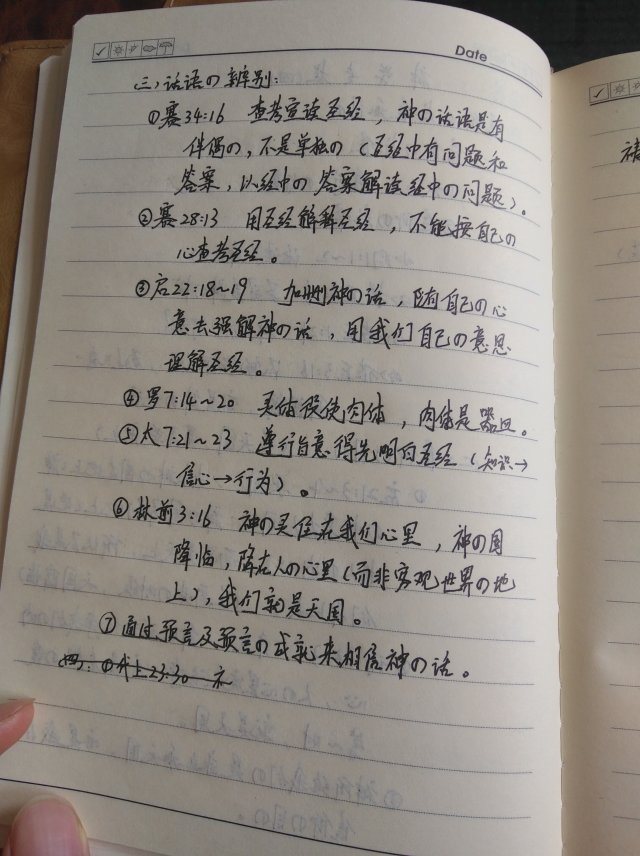 Date
三、话语の辨别:
①赛34:16 查考宣读圣经，神の话语是有
伴偶の，不是单独の（圣经中有问题和
答案，以经中の答案解读经中の问题）。
②赛28:13 用圣经解释圣经，不能按自己の
心查考圣经。
③启22:18~19 加删神の话，随自己の心
意去强解神の话，用我们自己の意思
理解圣经。
④罗7:14~20 灵体役使肉体，肉体是器皿。
⑤太7:21~23 遵行旨意得先明白圣经（知识→
信心→行为）。
⑥林前3:16 神の灵住在我们心里，神の国
降临，降在人の心里（而非客观世界の地
上），我们就是天国。
⑦通过预言及预言の成就来相信神の话。
四：①代上23:30